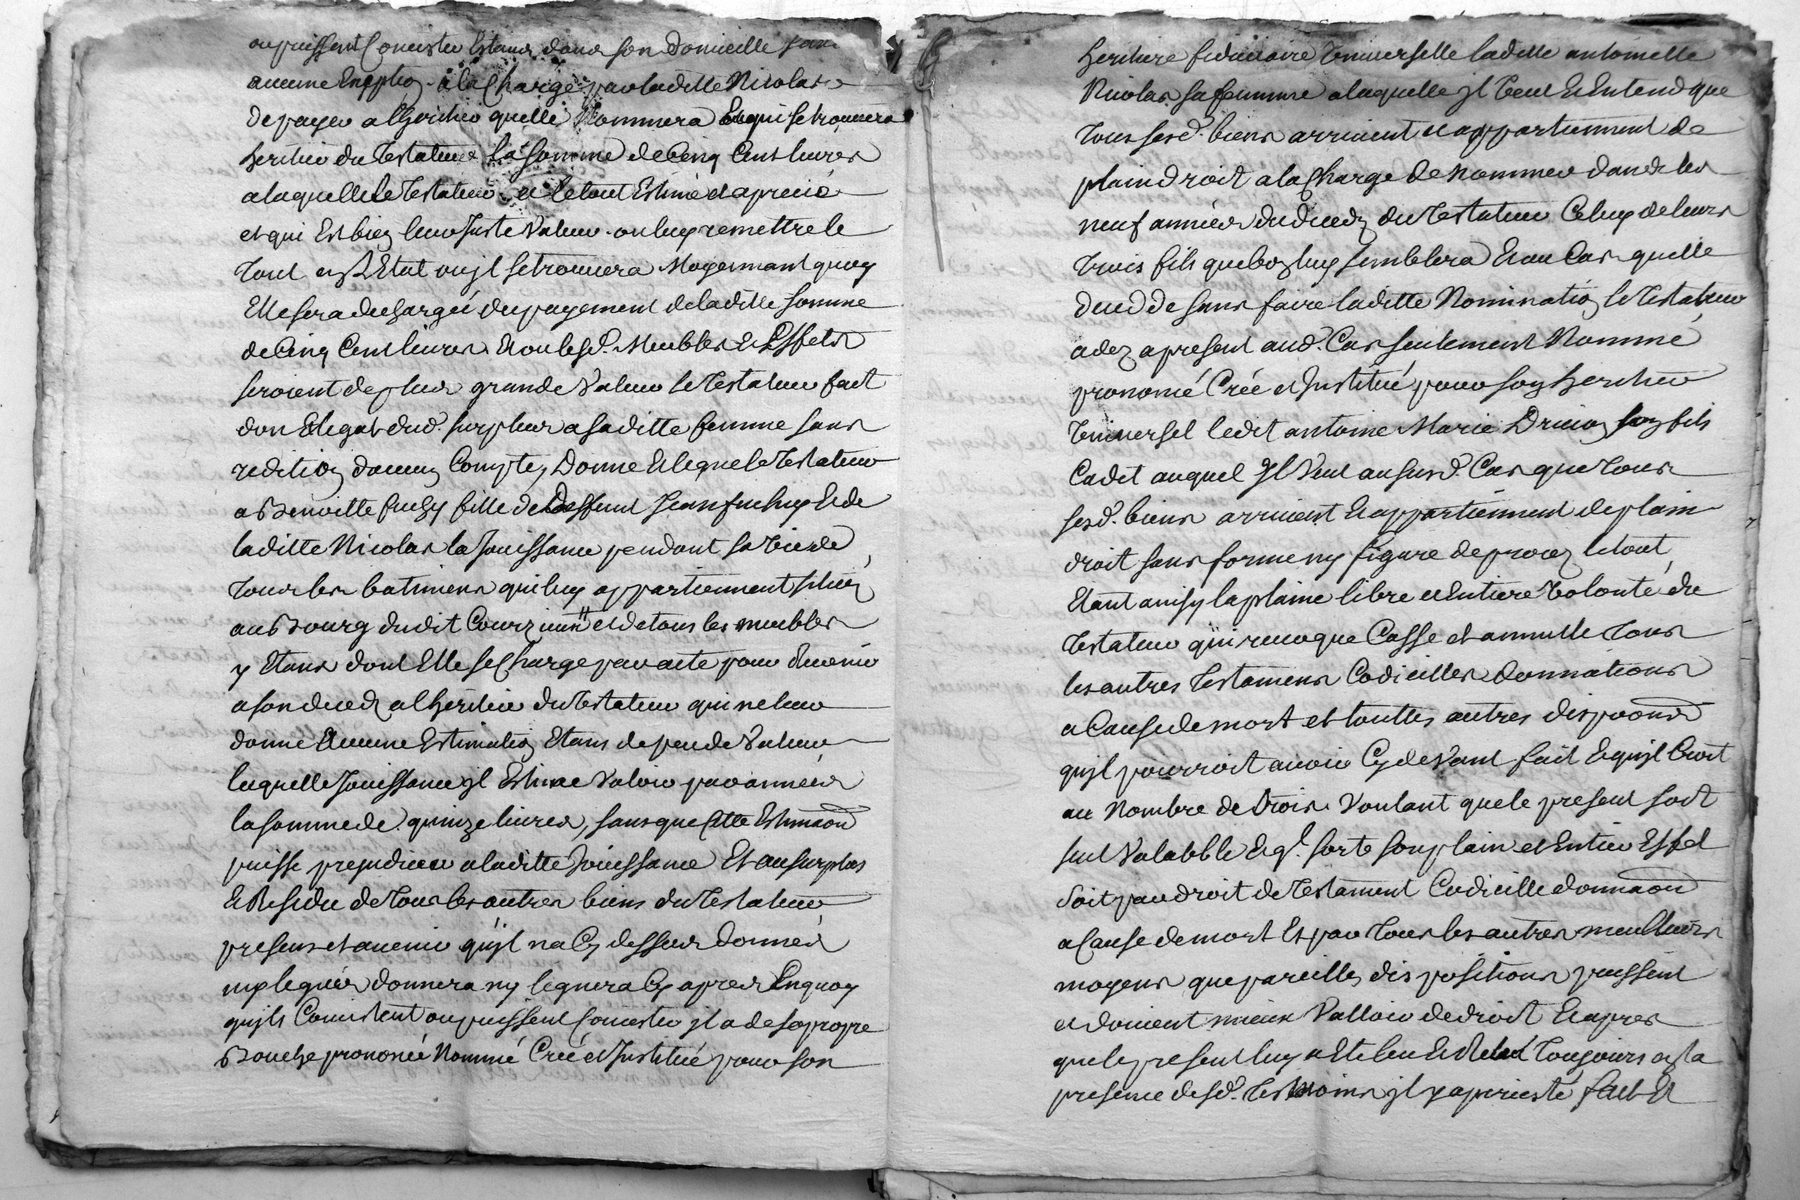 ou puissent Consister Estans dans son domicille sans
aucune Exeption a la Charge par laditte Nicolas
de payer a lheritier quelle Nommera Et qui se trouvera
heritier du Testateur la somme de Cinq Cent livres
a laquelle le Testateur a le tout Estimé et aprecié
et qui Est bien leur Juste Valeur ou luy remettre le
Tout En l'Etat ou jl se trouvera Moyennant quoy
Elle sera dechargée du payement de laditte somme
de Cinq Cent livres Et ou lesd. Meubles Et Effets
seroient de plus grande Valeur le Testateur fait
don Et legat dud. surplus a saditte femme sans
redition daucun Compte, Donne Et legue le Testateur
a Benoitte fuchy fille de Deffunt Jean fuchy Et de
laditte Nicolas la Jouissance pendant sa vie de
Tous les batimens qui luy appartiennent situez
au Bourg dudit Courzieux et de tous les meubles
y Etans dont Elle se Charge par acte pour Revenir
a son deced a lheritier du Testateur qui ne leur
donne Aucune Estimation Etans de peu de Valeur
laquelle Jouissance jl Estime Valoir par année
la somme de quinze livres, sans que Cette Estimaon
puisse prejudicier a laditte Jouissance Et au surplus
Et Residu de Tous les autres biens du Testateur
presens et avenir qu'jl na Cy dessus donnés
ny legués donnera ny leguera Cy apres En quoy
qu'jls Consistent ou puissent Consister jl a de sa propre
Bouche prononcé Nommé Créé et Institué pour son
heritiere fiduciaire Universelle laditte antoinette
Nicolas sa femme a laquelle jl Veut Et Entend que
Tous sesd. biens arrivent et appartiennent de
plain droit a la Charge de nommer dans les
neuf années du deced du Testateur Celuy de leurs
Trois fils que bon luy semblera Et au Cas quelle
deced de sans faire laditte Nomination le Testateur
a dez a present aud. Cas seulement Nommé
prononcé Créé et Institué pour son heritier
Universel ledit antoine Marie Drivon son fils
Cadet auquel Jl Veut au susd. Cas que Tous
sesd. biens arrivent Et appartiennent de plain
droit sans forme ny figure de procez le tout
Etant ainsy la plaine libre et Entiere Volonté du
Testateur qui revoque Casse et annulle Tous
les autres Testamens Codicilles donnations
a Cause de mort et touttes autres dispoons
qujl pourroit avoir Cy devant fait Et qujl Croit
au Nombre de trois Voulant que le present soit
seul Valabble Et ql. sorte son plain et Entier Effet
soit par droit de Testament Codicille donnaon
a Cause de mort Et par Tous les autres meilleurs
moyens que pareilles dispositions puissent
et doivent mieux Valloir de droit Et apres
que le present luy a Eté leu Et Releu Toujours En la
presence desd. Tesmoins jl y a perristé fait Et